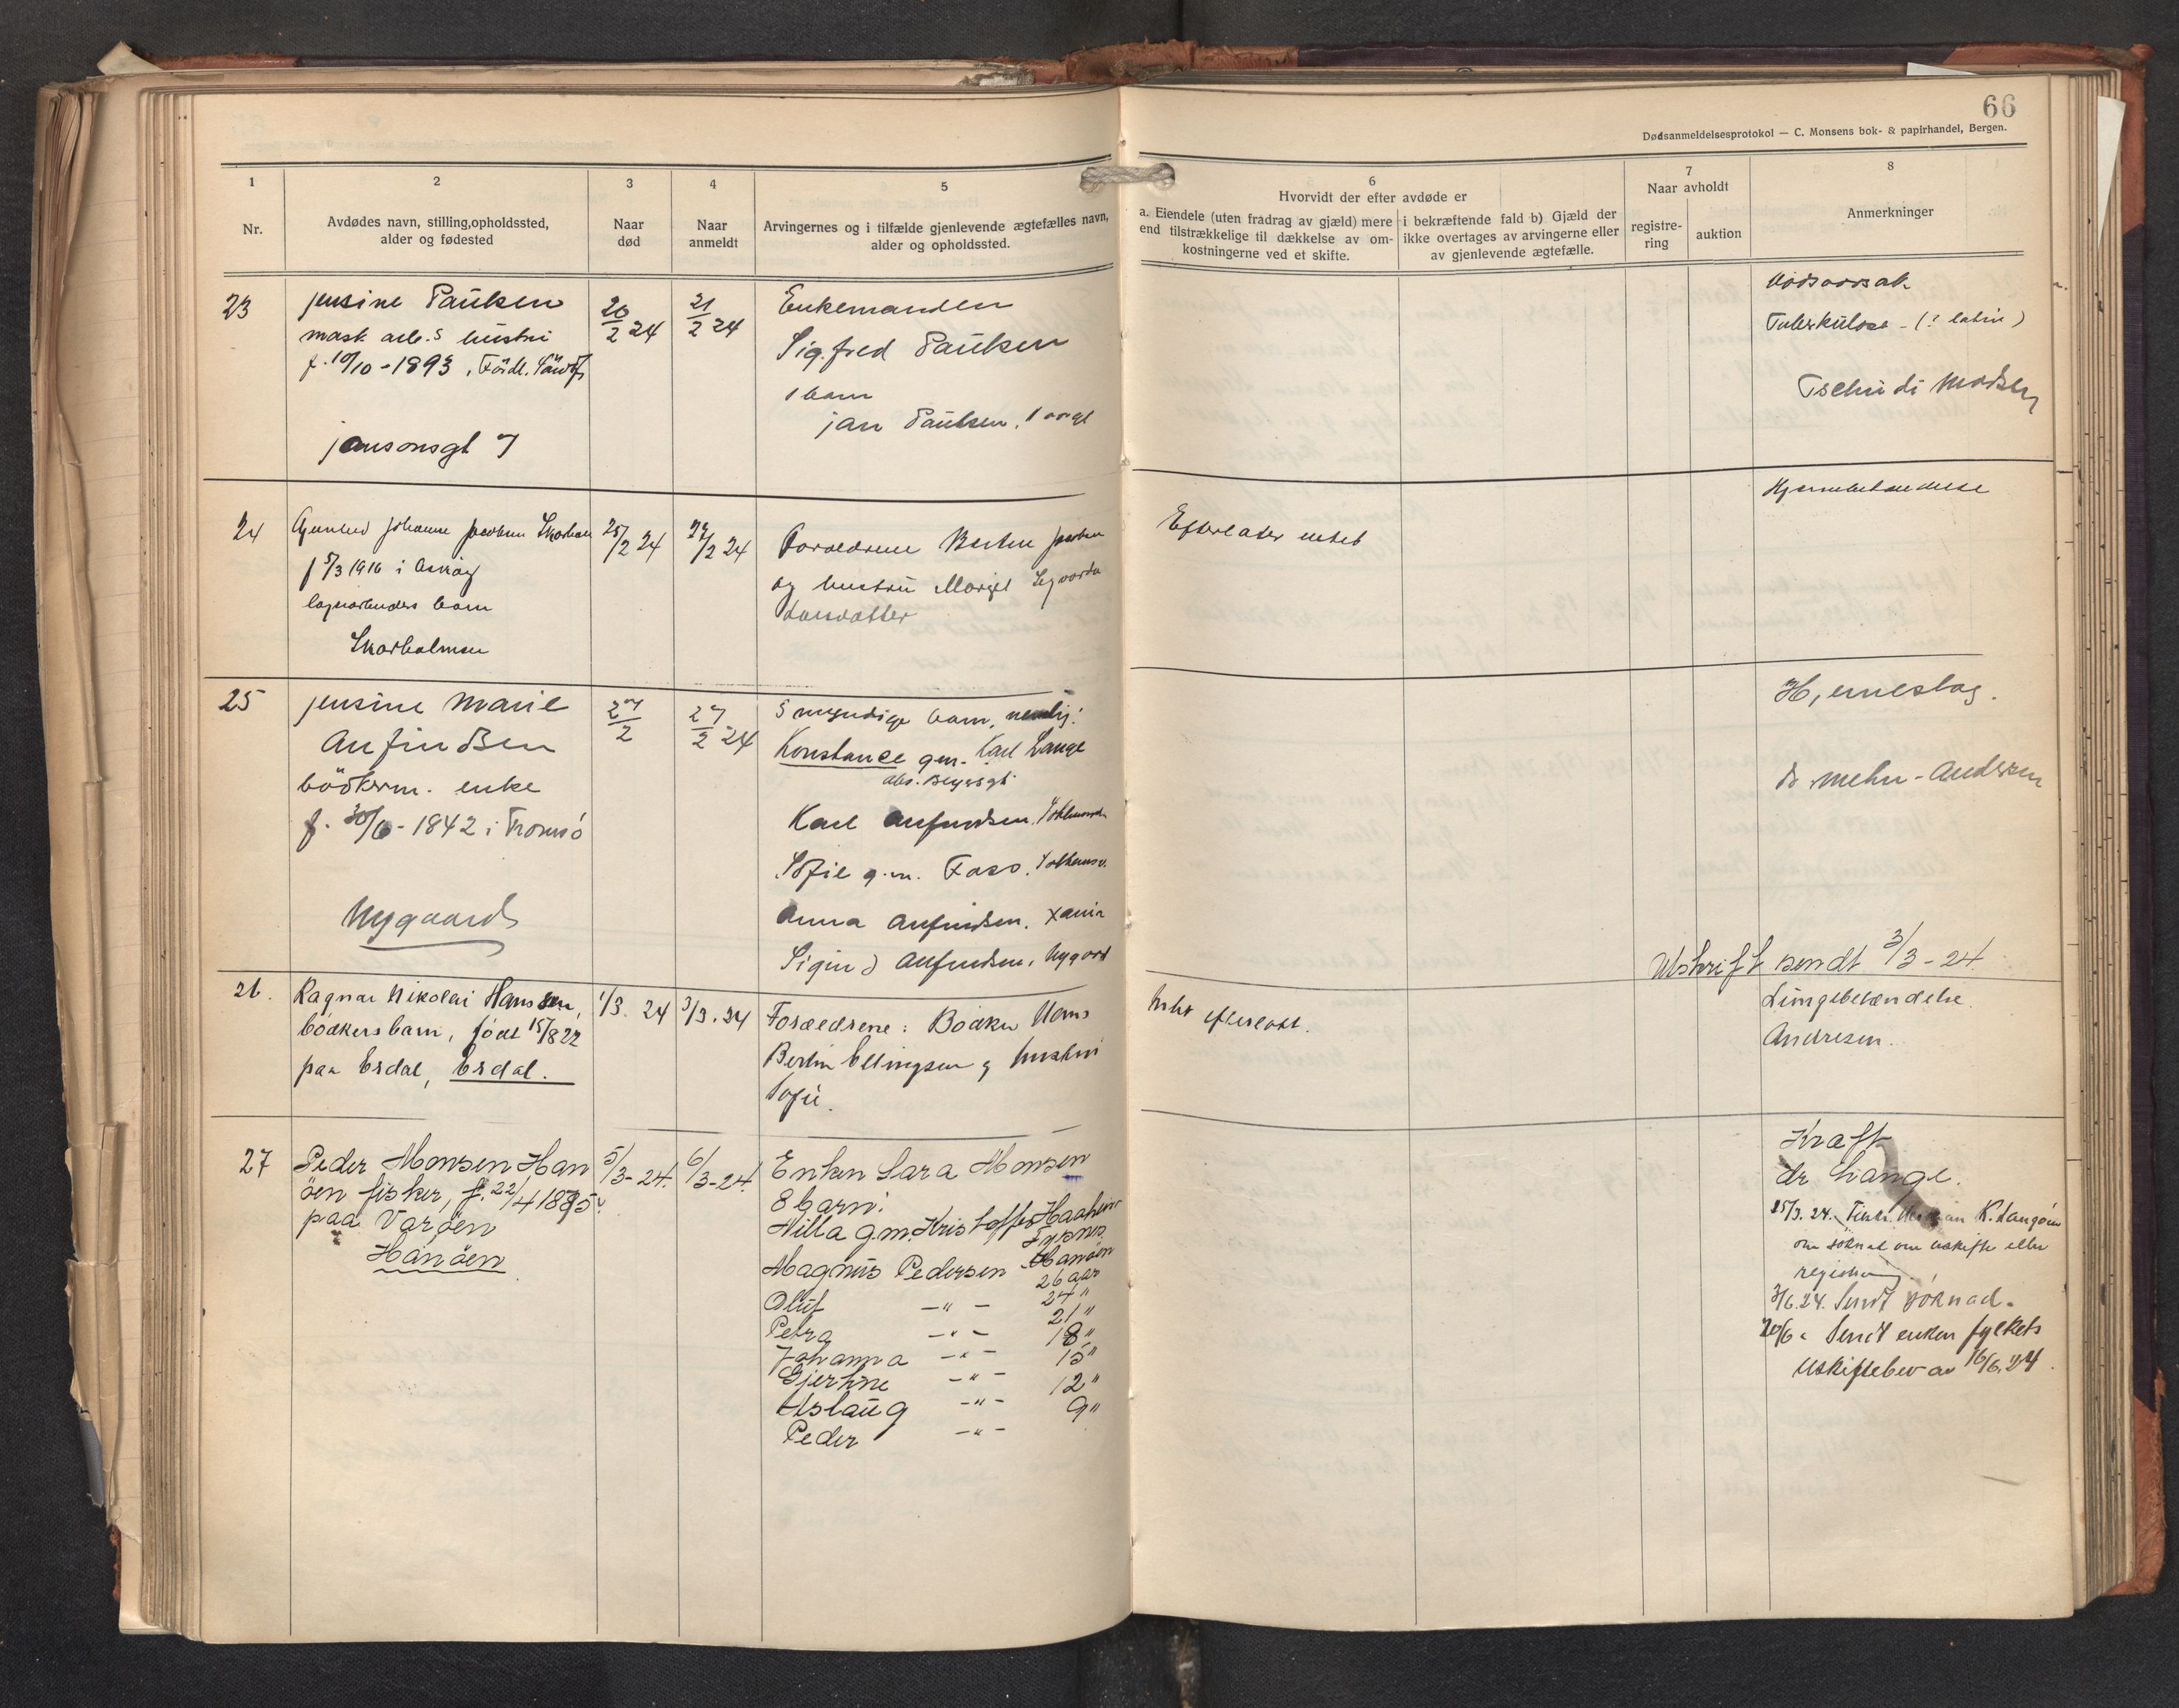 66
Dødsanmeldelsesprotokol — C. Monsens bok- & papirhandel, Bergen.
1
Nr.
2
Avdødes navn, stilling, opholdssted,
alder og fødested
3
Naar
død
4
Naar
anmeldt
5
Arvingernes og i tilfælde gjenlevende ægtefælles navn,
alder og opholdssted.
6
Hvorvidt der efter avdøde er
a. Eiendele (uten fradrag av gjæld) mere
end tilstrækkelige til dækkelse av om-
kostningerne ved et skifte.
i bekræftende fald b) Gjæld der
ikke overtages av arvingerne eller
av gjenlevende ægtefælle.
7
Naar avholdt
registre-
ring
auktion
8
Anmerkninger
23
Jensine Paulsen
mask arb.s hustru
f. 10/10-1893,
Jansonsgt 7
20/2 24
21/2 24
Enkemanden
Sigfred Paulsen
1 barn
Jan Paulsen, 1 aargl
Dødsaarsak
Tuberkulose - (? latin)
Tschudi Madsen
24
Johanne Jacobsen
f 5/3 1916 i Askøy
barn
Skarholmen
25/2 24
27/2 24
Forældrene
og hustru
Larsdatter
Efterlater intet
Hjernebetændelse
25
Jensine Marie
Anfindsen
bödkerm. enke
f. 30/6-1842 i Tromsö
Nygaard
27/2
27/2 24
5 myndige barn, nemlig:
Konstance gm. Karl Lange
Karl Anfindsen,
Sofie g.m. Faso,
Anna Anfindsen. Xania
Sigurd Anfindsen, Nygård
Hjerneslag.
dr Mehn-Andersen
Utskrift sendt 3/3-24
26.
Ragnar Nikolai Hanssen,
bödkersbarn, født 15/8 22
paa Erdal, Erdal.
1/3. 24
3/3. 24
Forældrene: Bödker Hans
Bertin Ellingsen og hustru
Sofie.
Intet efterlatt.
Lungebetændelse
Andresen.
27
Peder Monsen Han
öen fisker, f. 22/4 1885
paa Varöen
Hanöen
5/3-24.
6/3-24.
Enken Sara Monsen
8 barn:
Milla g.m. Kristoffer Haaheim
Magnus Pedersen Hanöen
26 aar
Oluf —"— 24"
Petra —"— 21"
Johanna —"— 18"
Gjertine —"— 15"
Aslaug —"— 12"
Peder —"— 9"
Kræft
dr Lange.
25/3. 24. K. Langöen
om söknad om uskifte eller
registrering.
3/6.24. Sendt söknad.
20/6 " Sendt enken fylkets
uskiftebev av 16/6.24.